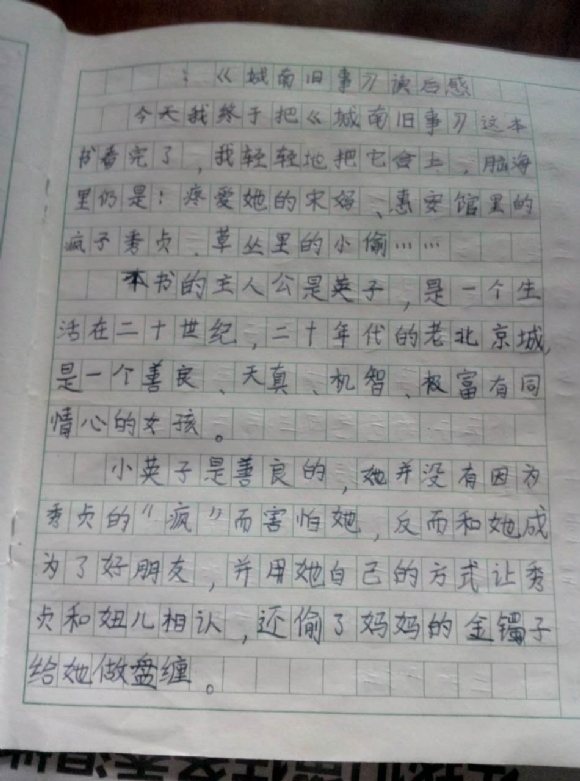 ：《城南旧事》读后感
今天我终于把《城南旧事》这本
书看完了，我轻轻地把它合上，脑海
里仍是：疼爱她的宋妈、惠安馆里的
疯子秀贞、草丛里的小偷……
本书的主人公是英子，是一个生
活在二十世纪，二十年代的老北京城，
是一个善良、天真、机智、极富有同
情心的女孩。
小英子是善良的，她并没有因为
秀贞的“疯”而害怕她，反而和她成
为了好朋友，并用她自己的方式让秀
贞和妞儿相认，还偷了妈妈的金镯子
给她做盘缠。